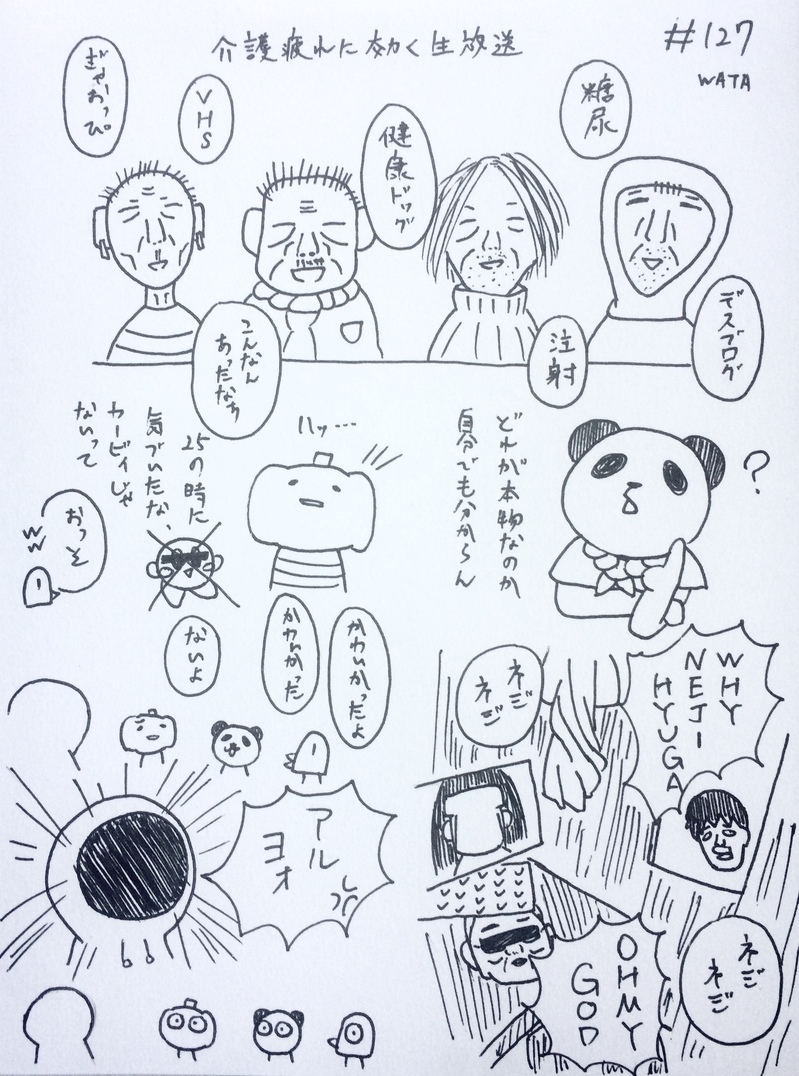 #127
WATA
介護疲れに効く生放送
糖尿
デスブログ
注射
健康ドッグ
VHS
こんなん
あったなぁ
ぎゃおっぴ。
?
どれが本物なのか
自分でも分からん
ハッ…
25の時に
気づいたな、
カービィじゃ
ないって
おっそ
ww
かわいかったよ
かわいかった
ないよ
アル
ヨォ
WHY
NEJI
HYUGA
ネジ
ネジ
OHMY
GOD
ネジ
ネジ